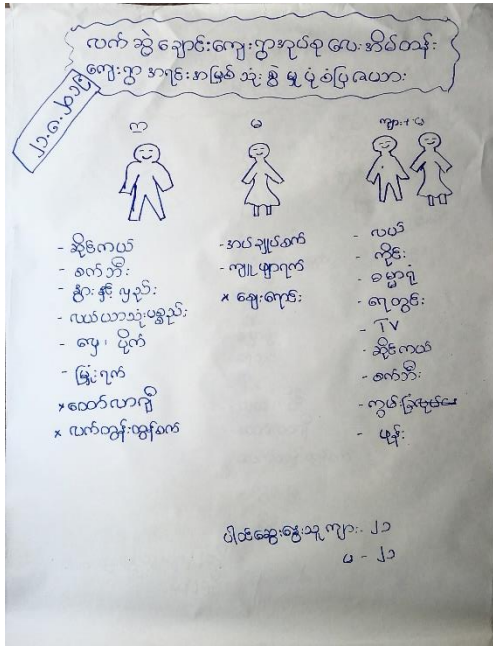 လက်ဆွဲချောင်းကျေးရွာအုပ်စု လေးအိမ်တန်း
ကျေးရွာ အရင်းအမြစ် သုံးစွဲမှု ပုံစံပြဇယား
၂၁.၁.၂၀၁၉
ကျား
- ဆိုင်ကယ်
- စက်ဘီး
- နွားနှင့် လှည်း
- လယ်ယာသုံးပစ္စည်း
- လှေ၊ ပိုက်
- မြှုံးရက်
× ထော်လာဂျီ
× လက်တွန်းထွန်စက်
မ
- အပ်ချုပ်စက်
- ကျူဖျာရက်
× ဈေးရောင်း
ကျား+မ
- လယ်
- ကိုင်း
- ဓမ္မာရုံ
- ရေတွင်း
- TV
- ဆိုင်ကယ်
- စက်ဘီး
- ကွမ်းခြံလုပ်
- ဖုန်း
ပါဝင်ဆွေးနွေးသူ ကျား - ၂၁
မ - ၂၁